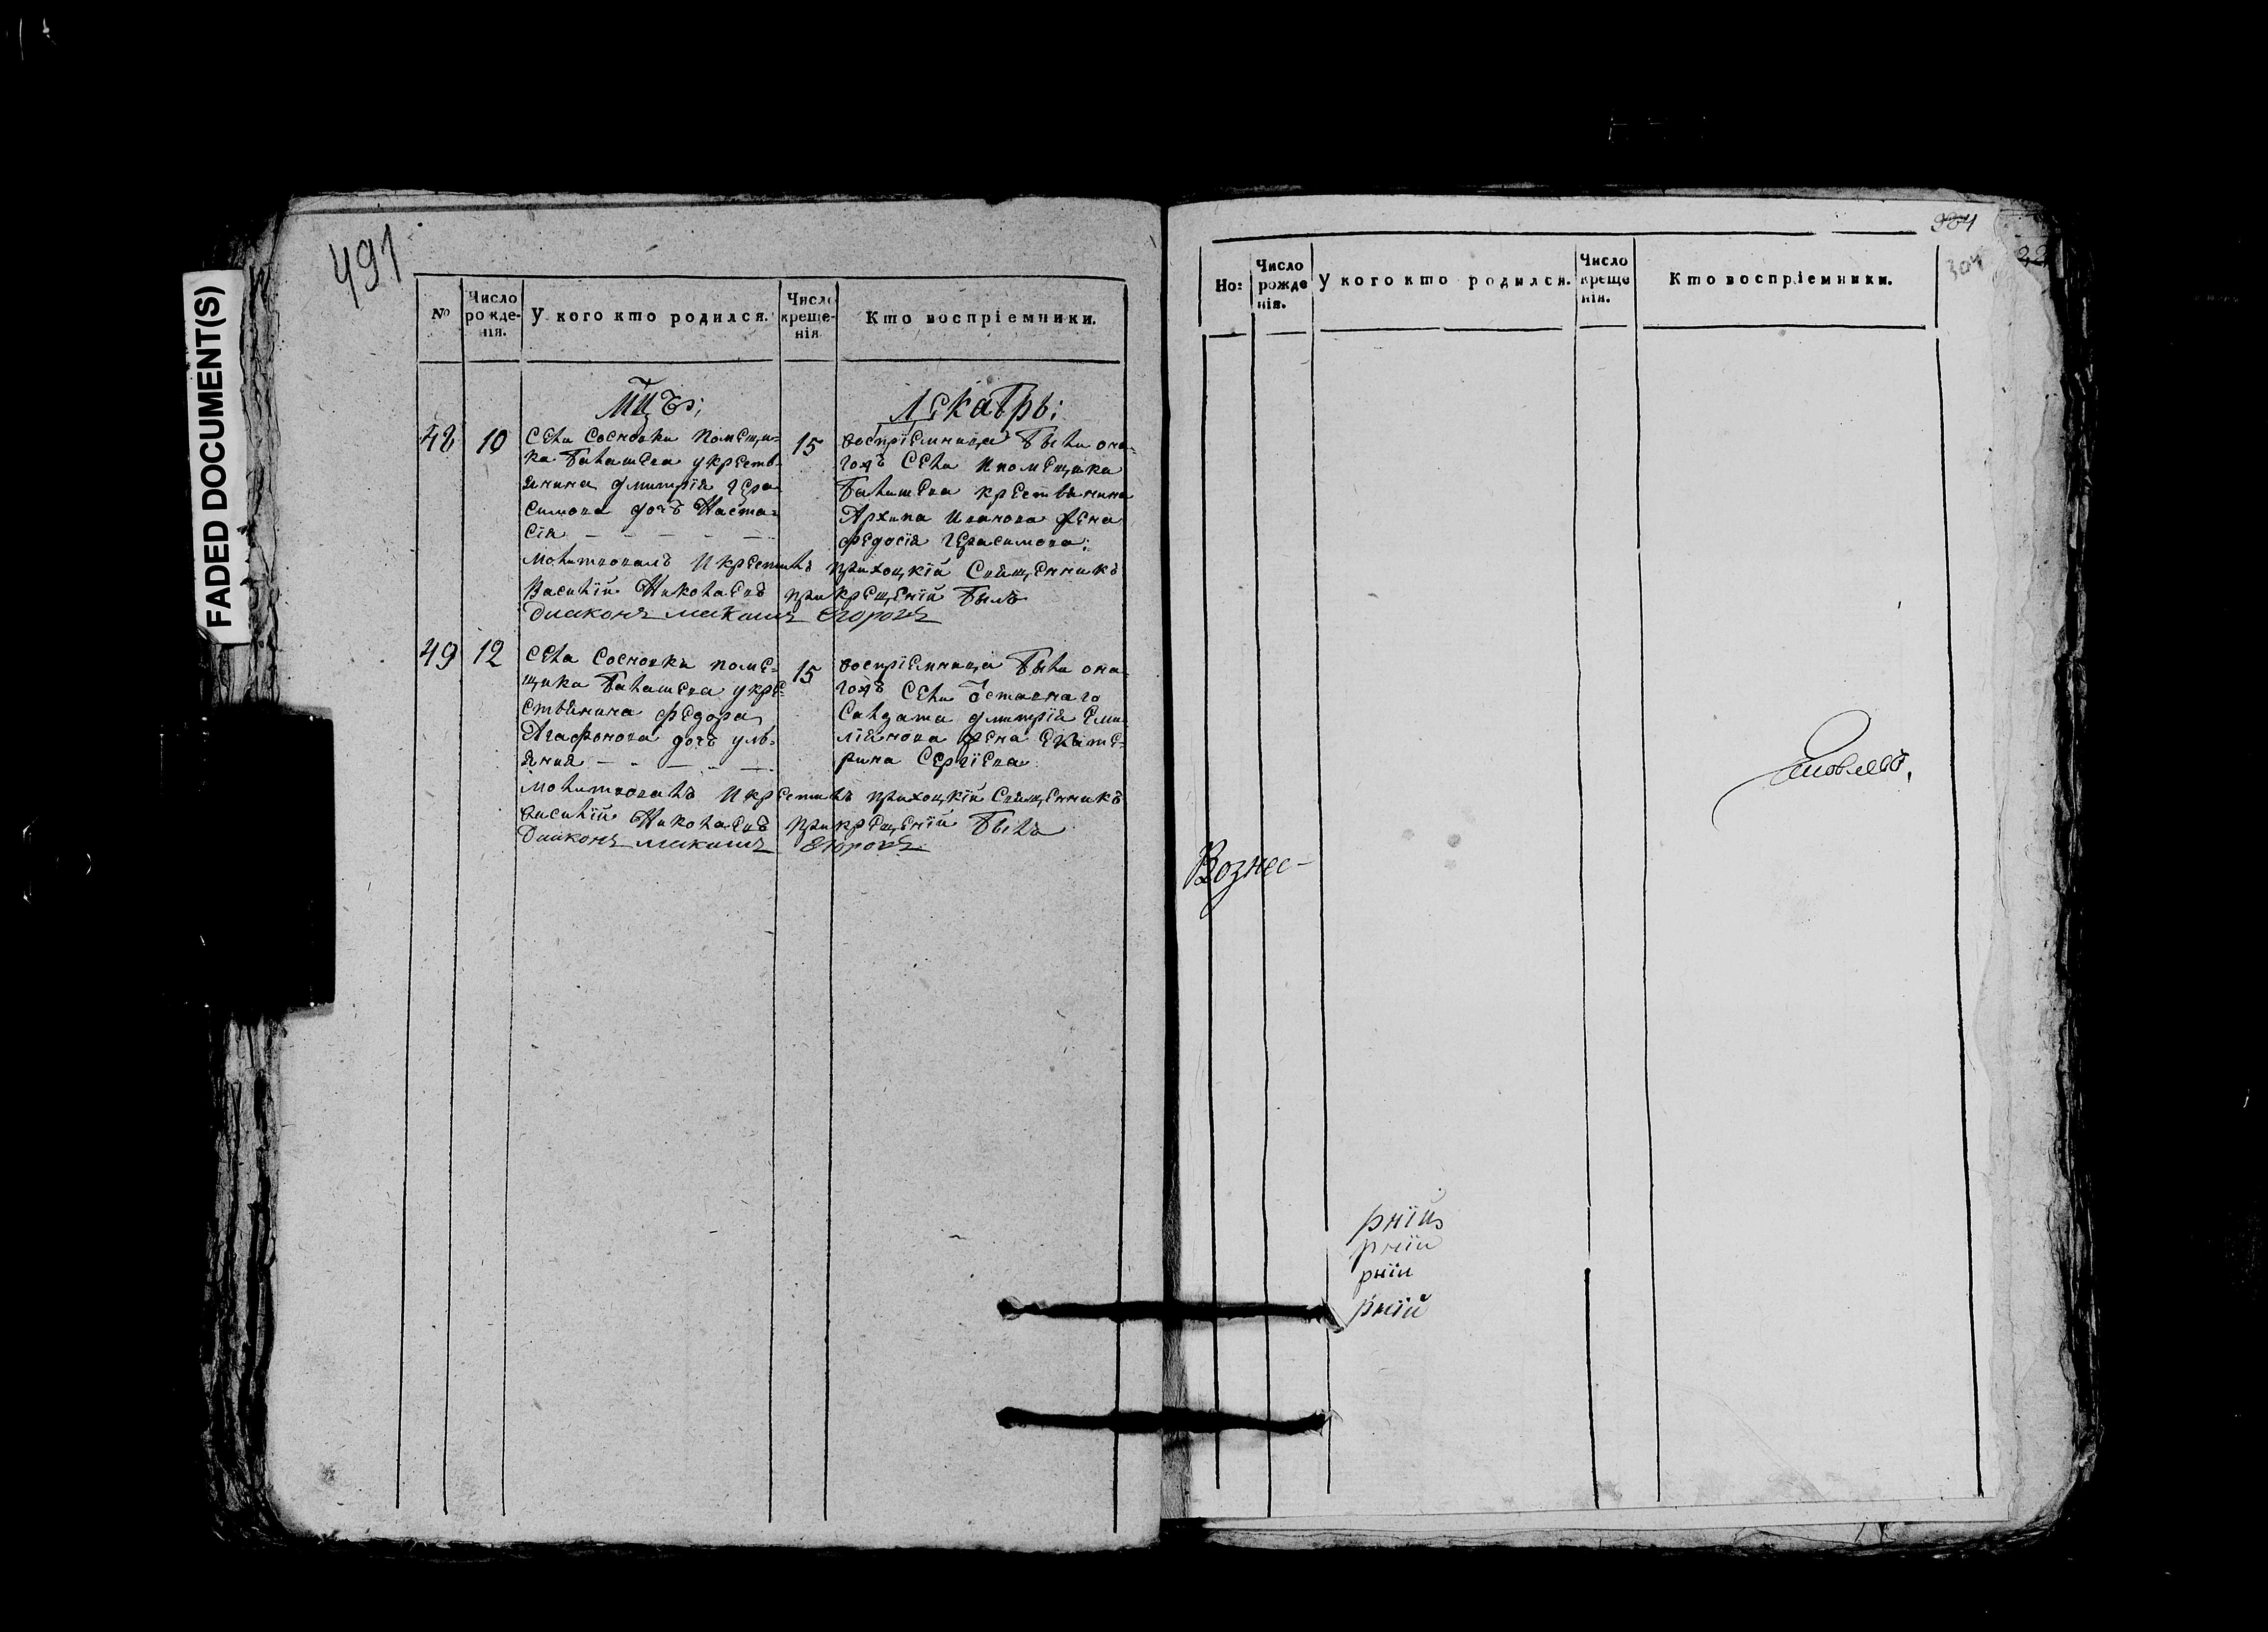 FADED DOCUMENT(S)
491
№
Число рожденія.
У кого кто родился.
Число крещенія
Кто воспріемники.
Мцъ;
Декабрь;
48
10
села Сосновки помещи-
ка Баташева укресть-
янина дмитрія Гера
симова дочъ Наста-
сія
15
воспріемница была она-
гожъ села ипомещика
Баташева крестьянина
Архипа Иванова жена
федосія Герасимова;
Молитвовалъ икрестилъ приходкій Священникъ
Василій Николаевъ прикрещеній былъ
Диаконъ Максимъ Егоровъ
49
12
села Сосновки поме-
щика Баташева укре
стьянина федора
Агафонова дочъ уль-
яния
15
воспріемница была она-
гожъ села отставнаго
Салдата дмитрія Еми
ліянова жена Екате-
рина Сергіева
молитвовалъ икрестилъ приходкій Священникъ
василій Николаевъ прикрещеній былъ
Диаконъ максимъ Егоровъ
304
304
22
Но:
Число рожденія.
У кого кто родился.
Число крещенія.
Кто воспріемники.
Вознес-
рніи
рніи
рніи
рній